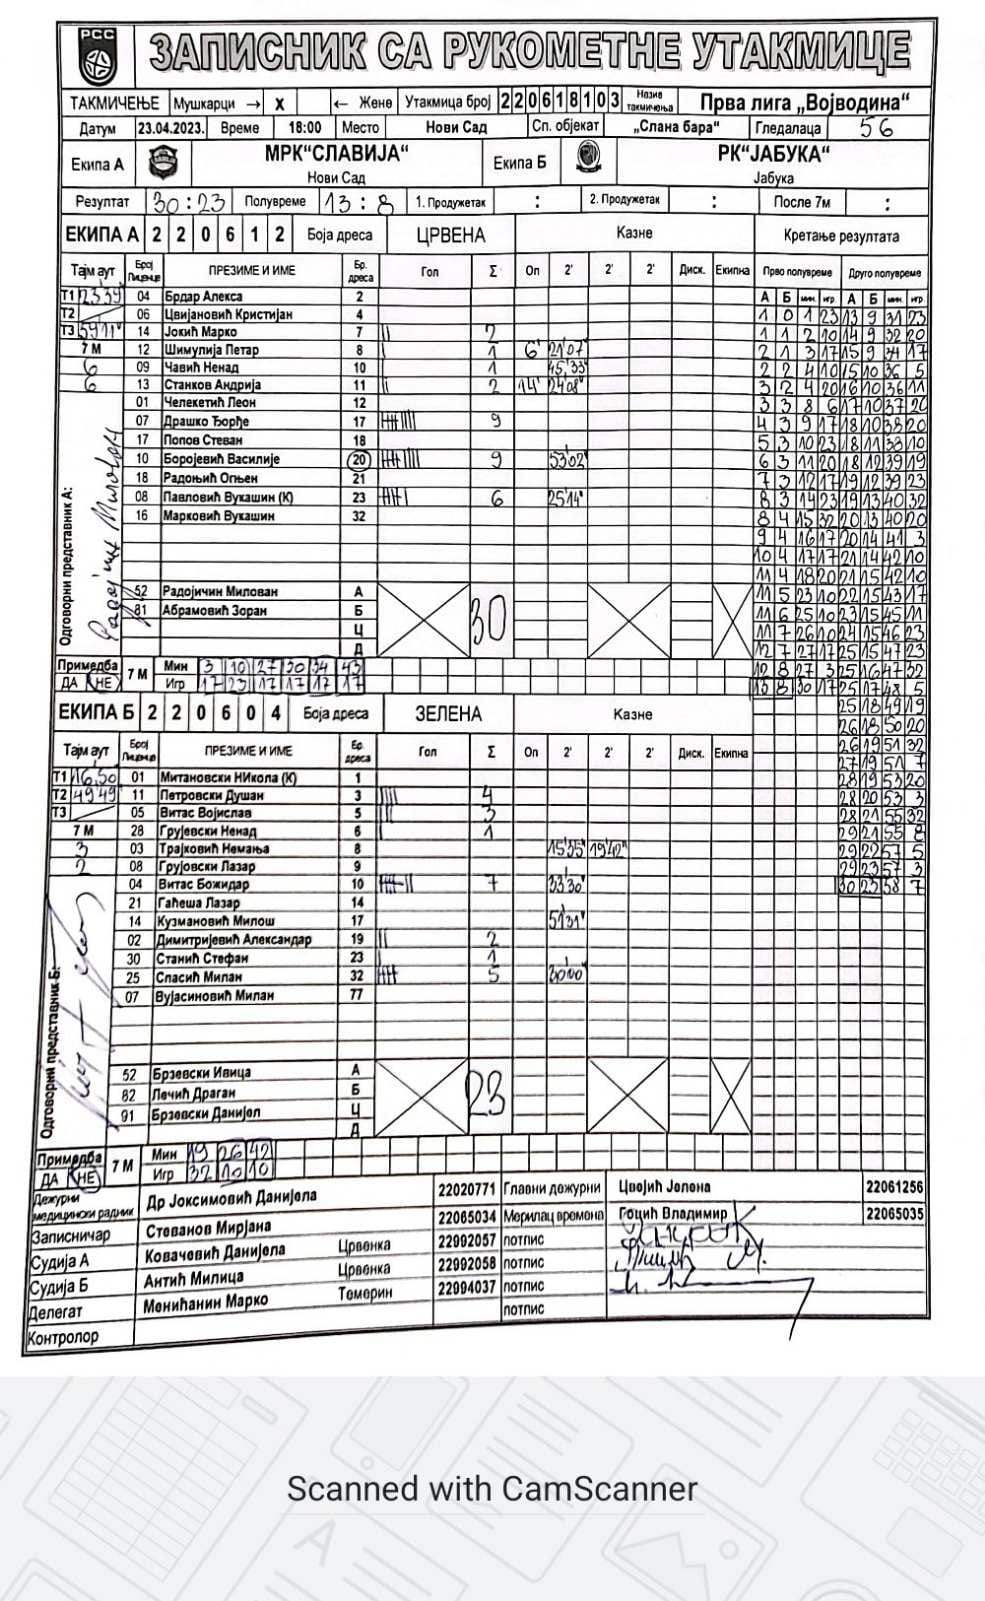 РСС
ЗАПИСНИК СА РУКОМЕТНЕ УТАКМИЦЕ
ТАКМИЧЕЊЕ Мушкарци → X ← Жене Утакмица број 2 2 0 6 1 8 1 0 3 Назив такмичења Прва лига „Војводина“
Датум 23.04.2023. Време 18:00 Место Нови Сад Сп. објекат „Слана бара“ Гледалаца 56
Екипа А МРК“СЛАВИЈА“ Нови Сад Екипа Б РК“ЈАБУКА“ Јабука
Резултат 30 : 23 Полувреме 13 : 8 1. Продужетак : 2. Продужетак : После 7м :
ЕКИПА А 2 2 0 6 1 2 Боја дреса ЦРВЕНА Казне Кретање резултата
Тајм аут Број Лиценце ПРЕЗИМЕ И ИМЕ Бр. дреса Гол Σ Оп 2' 2' 2' Диск. Екипна Прво полувреме Друго полувреме
Т1 23 39 04 Брдар Алекса 2 А Б мин. игр А Б мин. игр
Т2 06 Цвијановић Кристијан 4 1 0 1 23 13 9 31 23
Т3 59'11" 14 Јокић Марко 7 2 1 1 2 10 14 9 32 20
7 М 12 Шимулија Петар 8 1 6' 21'07" 2 1 3 17 15 9 34 17
6 09 Чавић Ненад 10 1 45'33" 2 2 4 10 15 10 36 5
6 13 Станков Андрија 11 2 14' 24'08" 3 2 4 20 16 10 36 11
01 Челекетић Леон 12 3 3 8 6 17 10 37 20
07 Драшко Ђорђе 17 9 4 3 9 17 18 10 38 20
17 Попов Стеван 18 5 3 10 23 18 11 38 10
10 Боројевић Василије 20 9 53'02" 6 3 11 20 18 12 39 19
18 Радоњић Огњен 21 7 3 12 17 19 12 39 23
08 Павловић Вукашин (К) 23 6 25'14" 8 3 14 23 19 13 40 32
16 Марковић Вукашин 32 8 4 15 32 20 13 40 20
9 4 16 17 20 14 41 3
10 4 17 17 21 14 42 10
11 4 18 20 21 15 42 10
52 Радојичин Милован А 30 11 5 23 10 22 15 43 17
81 Абрамовић Зоран Б 11 6 25 10 23 15 45 11
Ц 11 7 26 10 24 15 46 23
Д 12 7 27 17 25 15 47 23
Одговорни представник А:
Примедба ДА НЕ 7 М Мин 3 10 27 30 34 43 12 8 27 3 25 16 47 32
Игр 17 23 17 17 17 17 13 8 30 17 25 17 48 5
ЕКИПА Б 2 2 0 6 0 4 Боја дреса ЗЕЛЕНА Казне 25 18 49 19
26 18 50 20
Тајм аут Број Лиценце ПРЕЗИМЕ И ИМЕ Бр. дреса Гол Σ Оп 2' 2' 2' Диск. Екипна 26 19 51 32
27 19 51 7
Т1 16,50 01 Митановски НИкола (К) 1 28 19 53 20
Т2 49'49" 11 Петровски Душан 3 4 28 20 53 3
Т3 05 Витас Војислав 5 3 28 21 55 32
7 М 28 Грујевски Ненад 6 1 29 21 55 8
3 03 Трајковић Немања 8 15'35" 19'42" 29 22 57 5
2 08 Грујовски Лазар 9 29 23 57 3
04 Витас Божидар 10 7 33'30" 30 23 58 7
21 Гаћеша Лазар 14
14 Кузмановић Милош 17 51'31"
02 Димитријевић Александар 19 2
30 Станић Стефан 23 1
25 Спасић Милан 32 5 30'00"
07 Вујасиновић Милан 77
52 Брзевски Ивица А 23
82 Лечић Драган Б
91 Брзевски Данијел Ц
Д
Одговорни представник Б:
Примедба ДА НЕ 7 М Мин 19 26 42
Игр 32 10 10
Дежурни медицински радник Др Јоксимовић Данијела 22020771 Главни дежурни Цвејић Јелена 22061256
Записничар Стеванов Мирјана 22065034 Мерилац времена Гоцић Владимир 22065035
Судија А Ковачевић Данијела Црвенка 22092057 потпис
Судија Б Антић Милица Црвенка 22092058 потпис
Делегат Менићанин Марко Темерин 22094037 потпис
Контролор потпис
Scanned with CamScanner